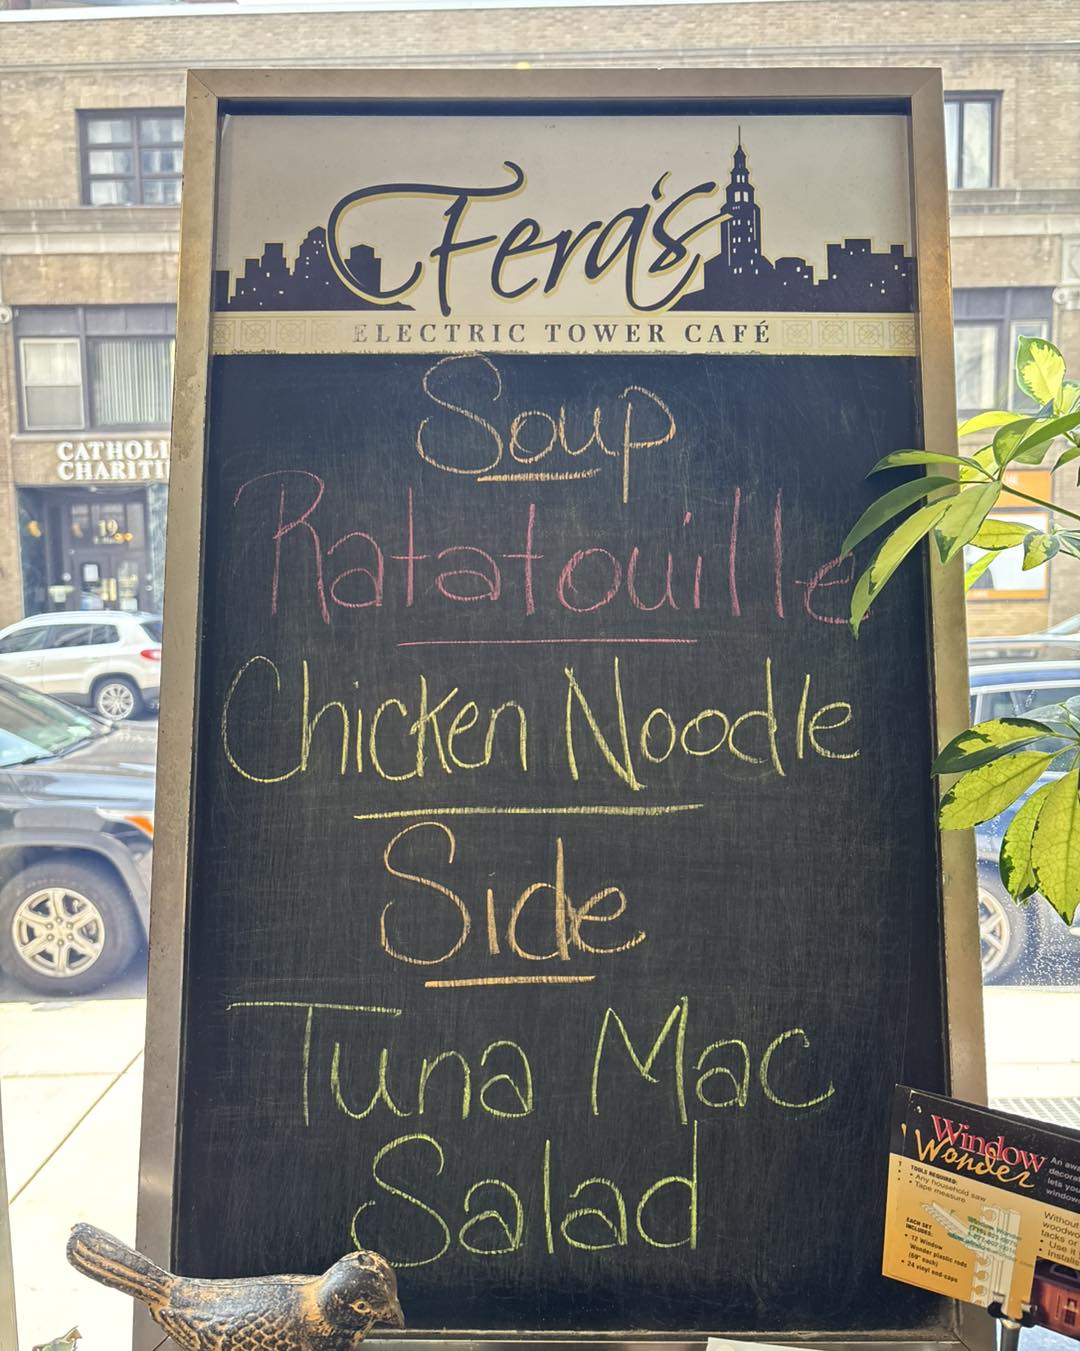 Fera's
ELECTRIC TOWER CAFÉ
Soup
Ratatouille
Chicken Noodle
Side
Tuna Mac
Salad
CATHOLI
CHARITI
19
Window
Wonder
TOOLS REQUIRED:
• Any household saw
• Tape measure
EACH SET
INCLUDES:
• 12 Window
Wonder plastic rods
(69" each)
• 24 vinyl end-caps
An awa
decorat
lets you
window
Without
woodwo
tacks or
• Use it
• Installs